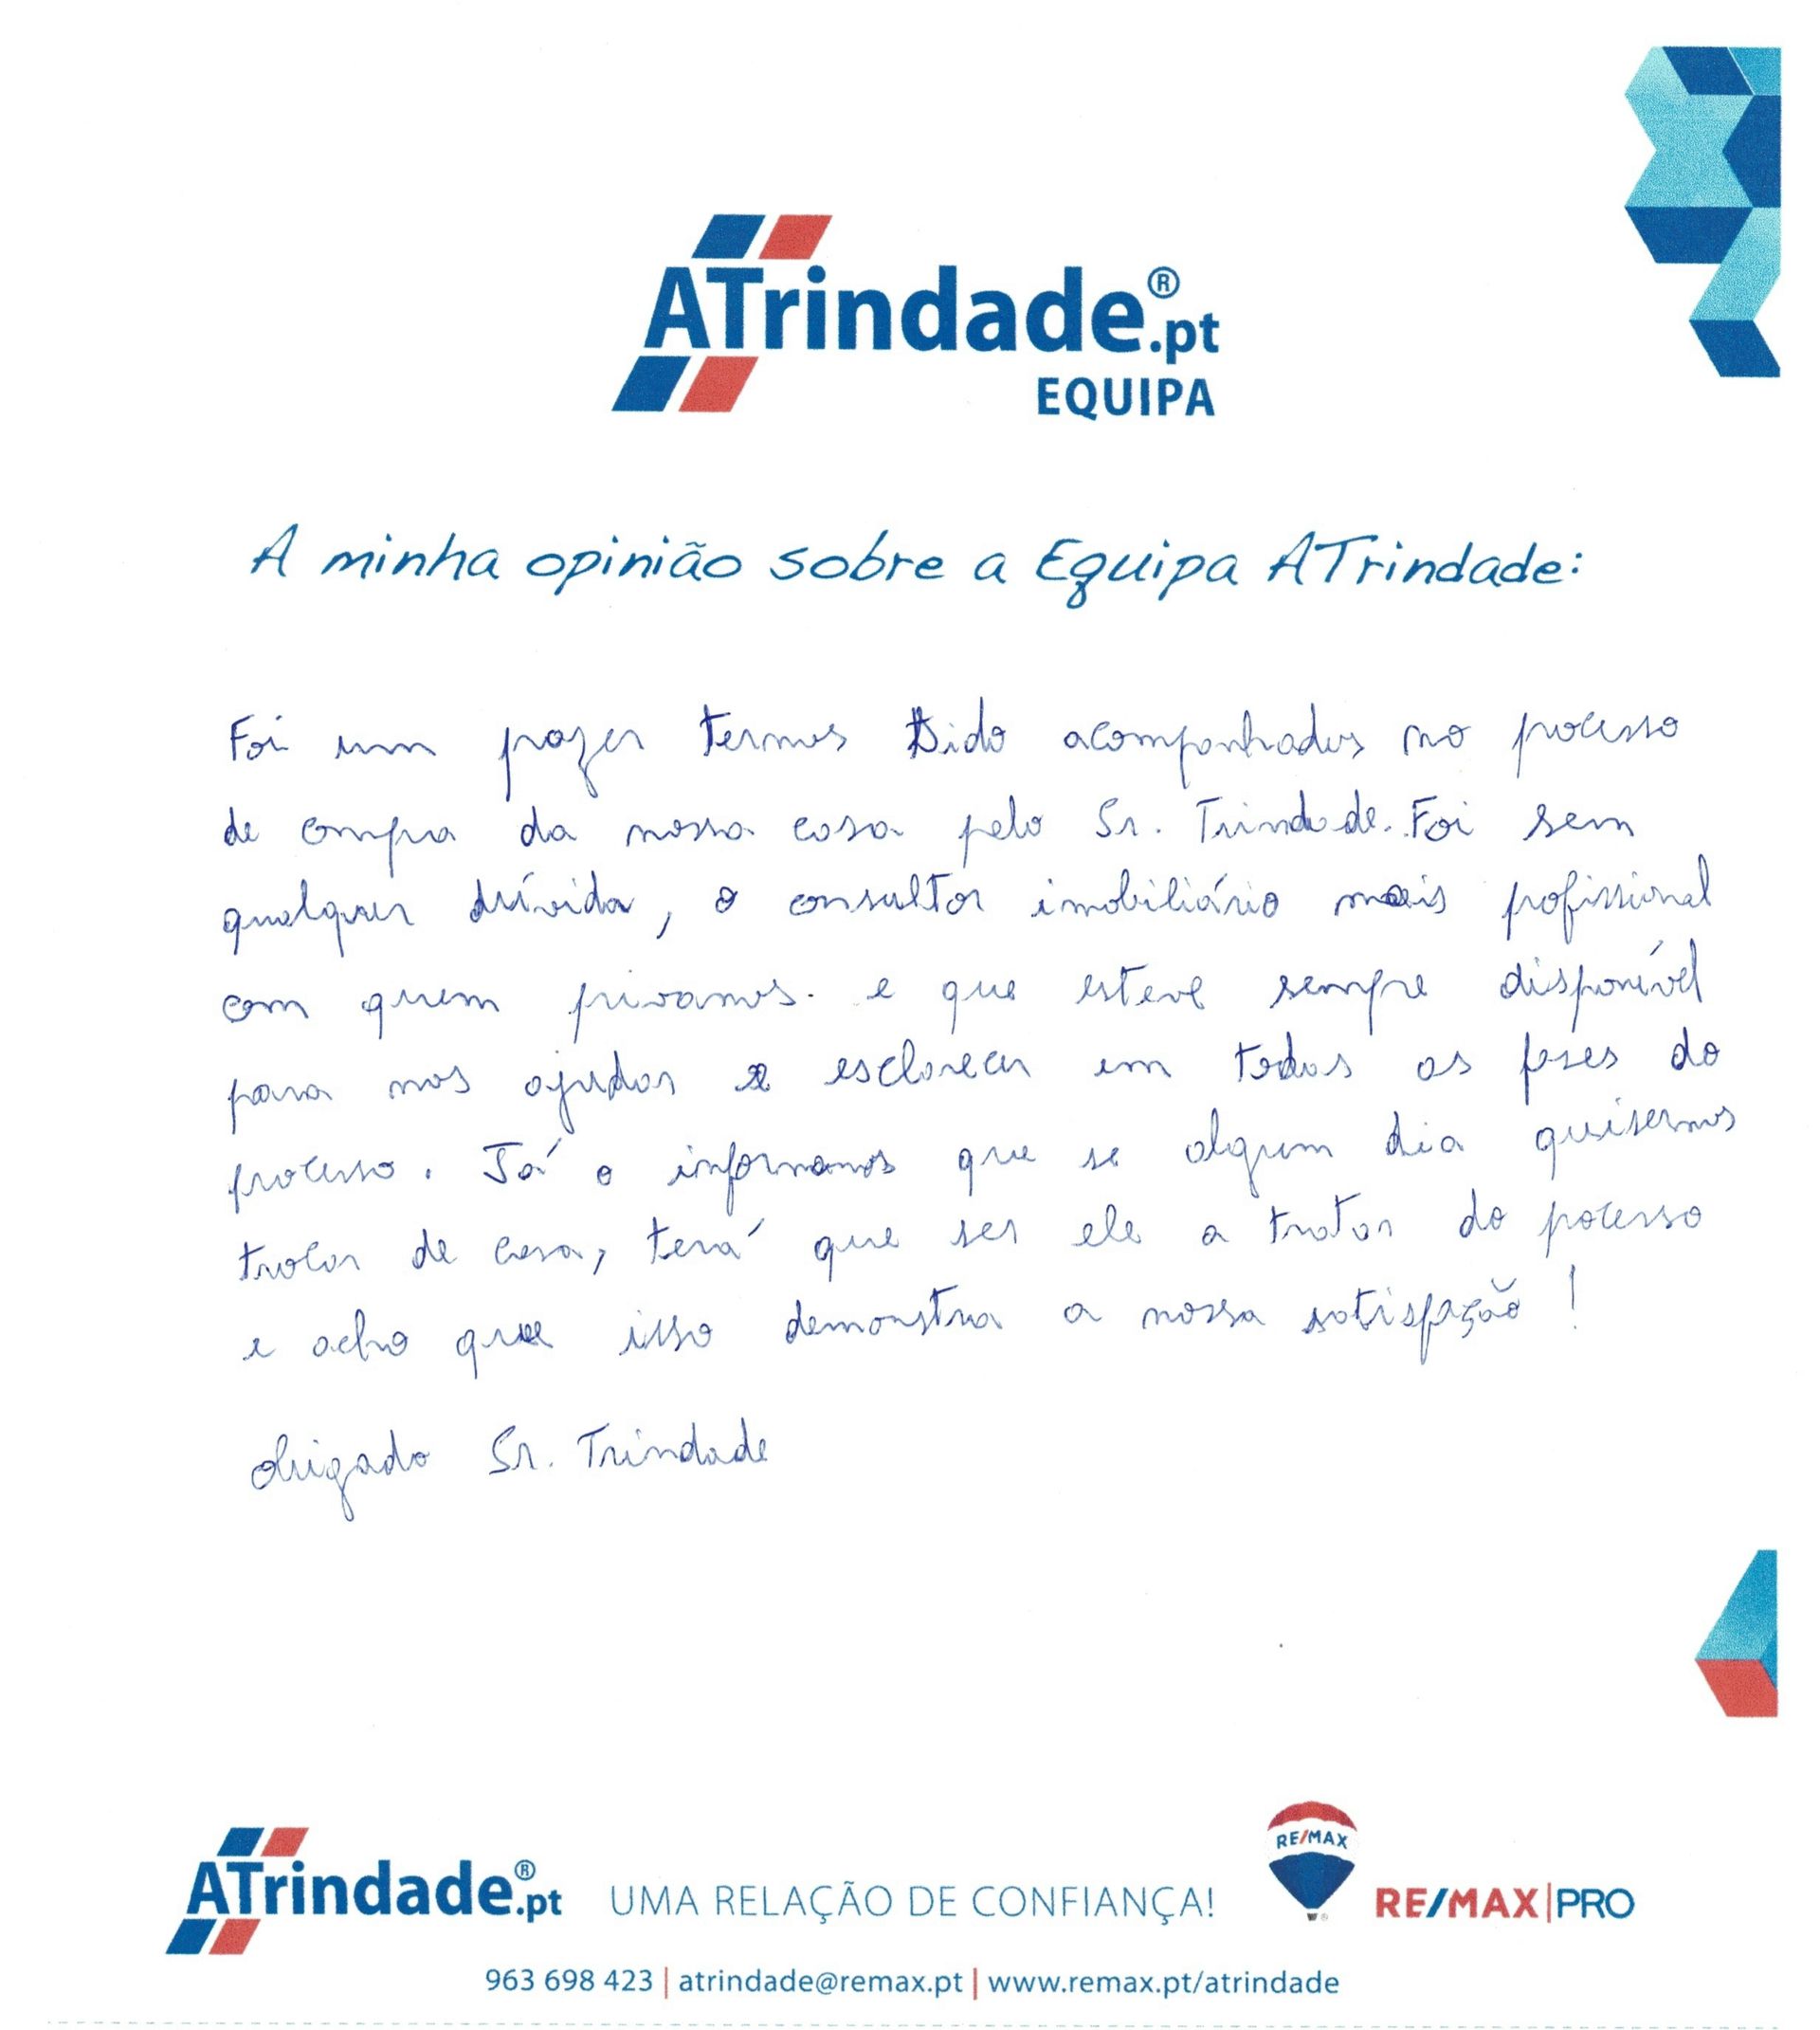 ATrindade®.pt
EQUIPA
A minha opinião sobre a Equipa ATrindade:
Foi um prazer termos sido acompanhados no processo
de compra da nossa casa pelo Sr. Trindade. Foi sem
qualquer dúvida, o consultor imobiliário mais profissional
com quem privamos. e que esteve sempre disponível
para nos ajudar e esclarecer em todas as fases do
processo. Já o informamos que se algum dia quisermos
trocar de casa, terá que ser ele a tratar do processo
e acho que isso demonstra a nossa satisfação!
Obrigado Sr. Trindade
ATrindade®.pt UMA RELAÇÃO DE CONFIANÇA! RE/MAX RE/MAX|PRO
963 698 423 | atrindade@remax.pt | www.remax.pt/atrindade